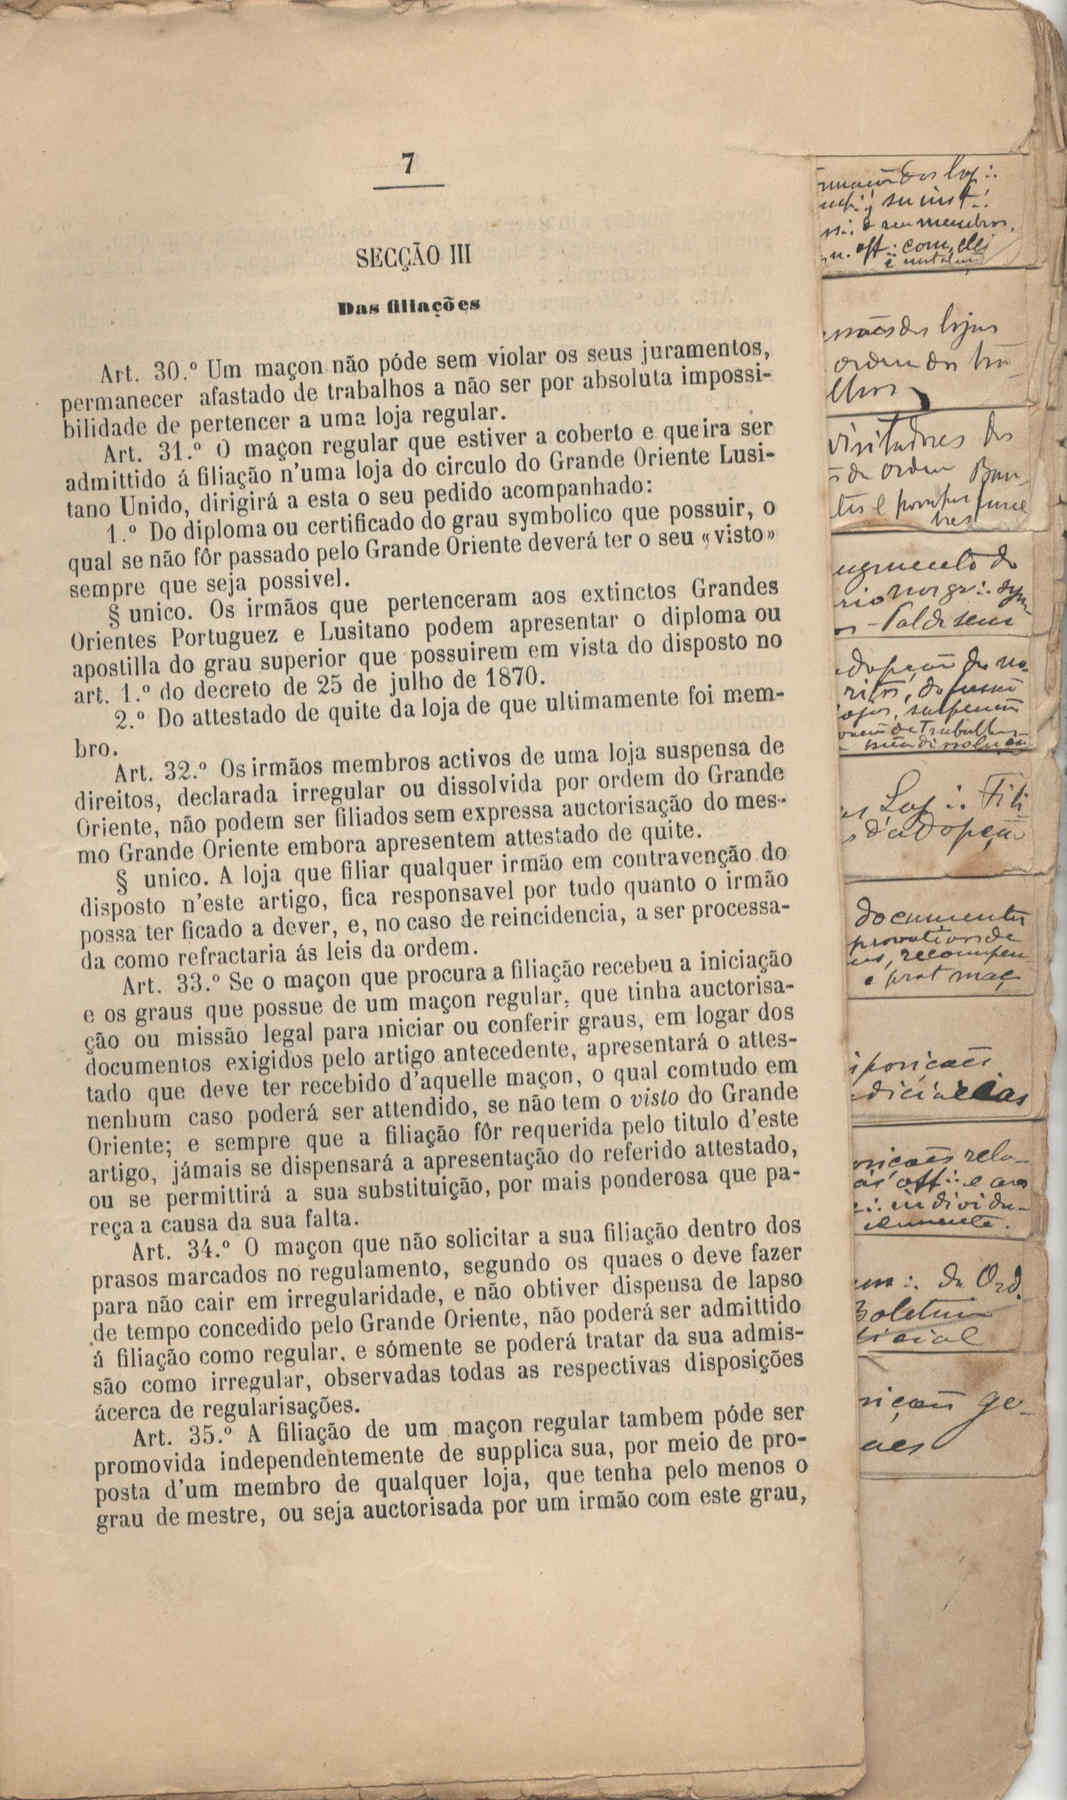 7
SECÇÃO III
Das filiações
Art. 30.º Um maçon não póde sem violar os seus juramentos,
permanecer afastado de trabalhos a não ser por absoluta impossi-
bilidade de pertencer a uma loja regular.
Art. 31.º O maçon regular que estiver a coberto e queira ser
admittido á filiação n'uma loja do circulo do Grande Oriente Lusi-
tano Unido, dirigirá a esta o seu pedido acompanhado:
1.º Do diploma ou certificado do grau symbolico que possuir, o
qual se não fôr passado pelo Grande Oriente deverá ter o seu «visto»
sempre que seja possivel.
§ unico. Os irmãos que pertenceram aos extinctos Grandes
Orientes Portuguez e Lusitano podem apresentar o diploma ou
apostilla do grau superior que possuirem em vista do disposto no
art. 1.º do decreto de 25 de julho de 1870.
2.º Do attestado de quite da loja de que ultimamente foi mem-
bro.
Art. 32.º Os irmãos membros activos de uma loja suspensa de
direitos, declarada irregular ou dissolvida por ordem do Grande
Oriente, não podem ser filiados sem expressa auctorisação do mes-
mo Grande Oriente embora apresentem attestado de quite.
§ unico. A loja que filiar qualquer irmão em contravenção do
disposto n'este artigo, fica responsavel por tudo quanto o irmão
possa ter ficado a dever, e, no caso de reincidencia, a ser processa-
da como refractaria ás leis da ordem.
Art. 33.º Se o maçon que procura a filiação recebeu a iniciação
e os graus que possue de um maçon regular, que tinha auctorisa-
ção ou missão legal para iniciar ou conferir graus, em logar dos
documentos exigidos pelo artigo antecedente, apresentará o attes-
tado que deve ter recebido d'aquelle maçon, o qual comtudo em
nenhum caso poderá ser attendido, se não tem o visto do Grande
Oriente; e sempre que a filiação fôr requerida pelo titulo d'este
artigo, jámais se dispensará a apresentação do referido attestado,
ou se permittirá a sua substituição, por mais ponderosa que pa-
reça a causa da sua falta.
Art. 34.º O maçon que não solicitar a sua filiação dentro dos
prasos marcados no regulamento, segundo os quaes o deve fazer
para não cair em irregularidade, e não obtiver dispensa de lapso
de tempo concedido pelo Grande Oriente, não poderá ser admittido
á filiação como regular, e sómente se poderá tratar da sua admis-
são como irregular, observadas todas as respectivas disposições
ácerca de regularisações.
Art. 35.º A filiação de um maçon regular tambem póde ser
promovida independentemente de supplica sua, por meio de pro-
posta d'um membro de qualquer loja, que tenha pelo menos o
grau de mestre, ou seja auctorisada por um irmão com este grau,
das lojas
ordem dos tra-
lhos
visitadores das
da ordem
documentos
Boletim